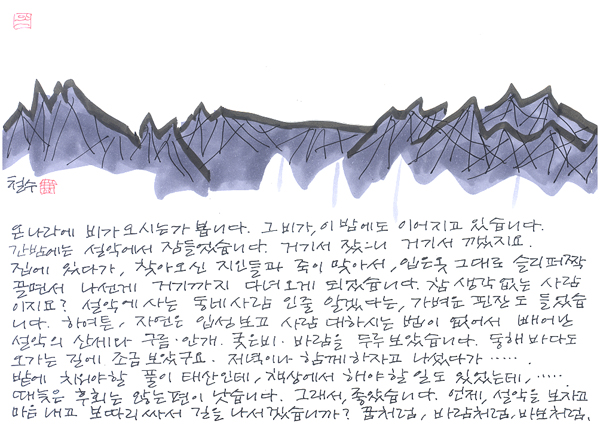 철수
온 나라에 비가 오시는가 봅니다. 그 비가, 이 밤에도 이어지고 있습니다.
간밤에는 설악에서 잠들었습니다. 거기서 잤으니 거기서 깨었지요.
집에 있다가, 찾아오신 지인들과 죽이 맞아서, 입은 옷 그대로 슬리퍼짝
끌면서 나선 게 거기까지 다녀오게 되었습니다. 참 생각 없는 사람
이지요? 설악에 사는 동네사람인 줄 알겠다는, 가벼운 핀잔도 들었습
니다. 하여튼, 자연은 입성 보고 사람 대하시는 법이 없어서 빼어난
설악의 산세와 구름·안개. 궂은비·바람을 두루 보았습니다. 동해바다도
오가는 길에 조금 보았구요. 저녁이나 함께 하자고 나섰다가 ‥‥‥.
밭에 치워야할 풀이 태산인데, 책상에서 해야할 일도 있었는데, ‥‥.
때늦은 후회는 않는 편이 낫습니다. 그래서, 좋았습니다. 언제, 설악을 보자고
마음 내고 보따리 싸서 길을 나서겠습니까? 꿈처럼, 바람처럼, 바보처럼.